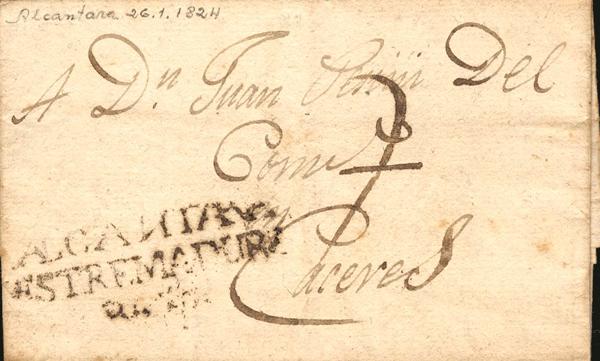 Alcantara 26.1.1824
A Dn Juan Del
7
Caceres
ALCANTARA
ESTREMADURA